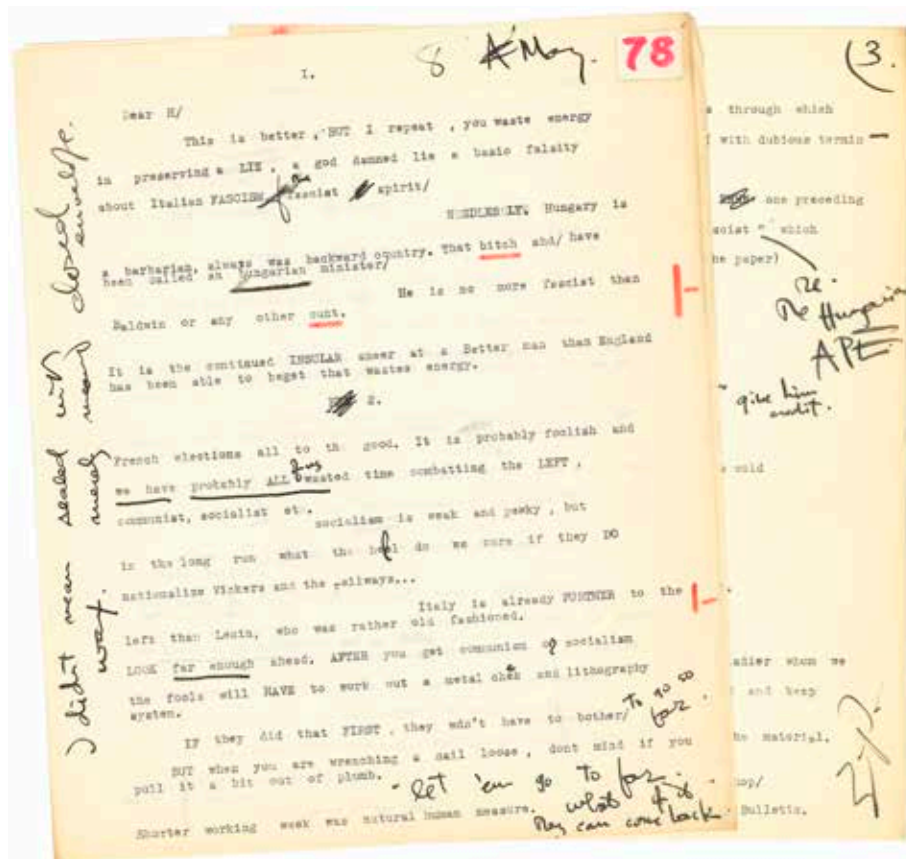 1.
8 May.
78
Dear H/
This is better, BUT I repeat , you waste energy
in preserving a LIE , a god damned lie a basic falsity
about Italian FASCISM, fascist spirit/
NEEDLESSLY. Hungary is
a barbarian, always was backward country. That bitch shd/ have
been called an hungarian minister/
He is no more fascist than
Baldwin or any other cunt.
It is the continued INSULAR sneer at a Better man than England
has been able to beget that wastes energy.
2.
French elections all to the good. It is probably foolish and
we have probably ALL wasted time combatting the LEFT ,
communist, socialist etc.
socialism is weak and pewky , but
in the long run what the hell do we care if they DO
nationalize Vickers and the railways...
Italy is already FURTHER to the
left than Lenin, who was rather old fashioned.
LOOK far enough ahead. AFTER you get communism or socialism
the fools will HAVE to work out a metal chek and lithography
system.
IF they did that FIRST , they wdn't have to bother/ to go so
far.
BUT when you are wrenching a nail loose , dont mind if you
pull it a bit out of plumb.
- let 'em go to far.
what of it
they can come back.
Shorter working week was natural human measure.
I didn't mean sealed with
wax.
merely meant closed envelope.
(3.
s through which
with dubious termin
one preceding
scist " which
he paper)
re.
The Hungarian
APE
give him
credit.
wold
adier whom we
and keep
he material.
op/
Bulletin.